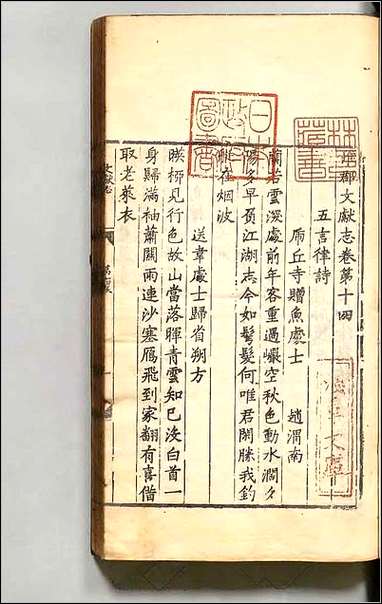 林氏藏書
日本政府圖書
淺草文庫
郡文獻志卷第十四
五言律詩
虎丘寺贈魚處士 趙渭南
蘭若雲深處前年客重過巖空秋色動水濶夕
陽多早負江湖志今如鬢髮何唯君閑勝我釣
艇在烟波
送韋處士歸省朔方
映柳見行色故山當落暉青雲知已沒白首一
身歸滿袖蕭關雨連沙塞鴈飛到家翻有喜借
取老萊衣